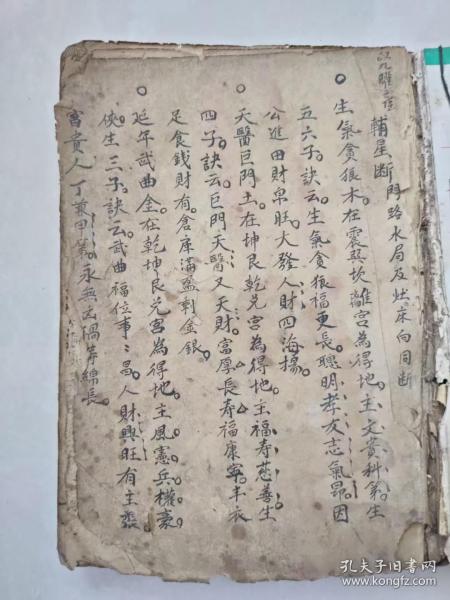 輔星断門路水局及灶床向同断
生氣貪狼木在震巽坎離宮為得地主文貴科第生
五六子訣云生氣貪狼福更長聰明孝友志氣昂因
公進田財帛旺大發人財四海揚
天醫巨門土在坤艮乾兑宮為得地主福寿慈善生
四子訣云巨門天醫又天財富厚長寿福康寧丰衣
足食錢財有倉庫滿盈剩金銀
延年武曲金在乾坤艮兑宮為得地主風憲兵權豪
俠生三子訣云武曲福位事〻昌人財興旺有主張
富貴人丁兼甲第永無凶禍寿綿長
孔夫子旧书网
www.kongfz.com